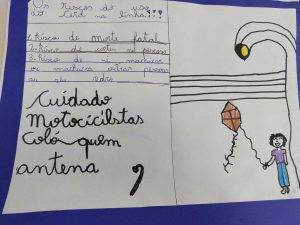 Os riscos do uso
do Cerol na linha!!!
1. Risco de morte fatal
2. Risco de cortes no pescoço
3. Risco de si machucar
ou machucar outras pessoas
Cuidado
Motocicilstas
Coló quem
antena